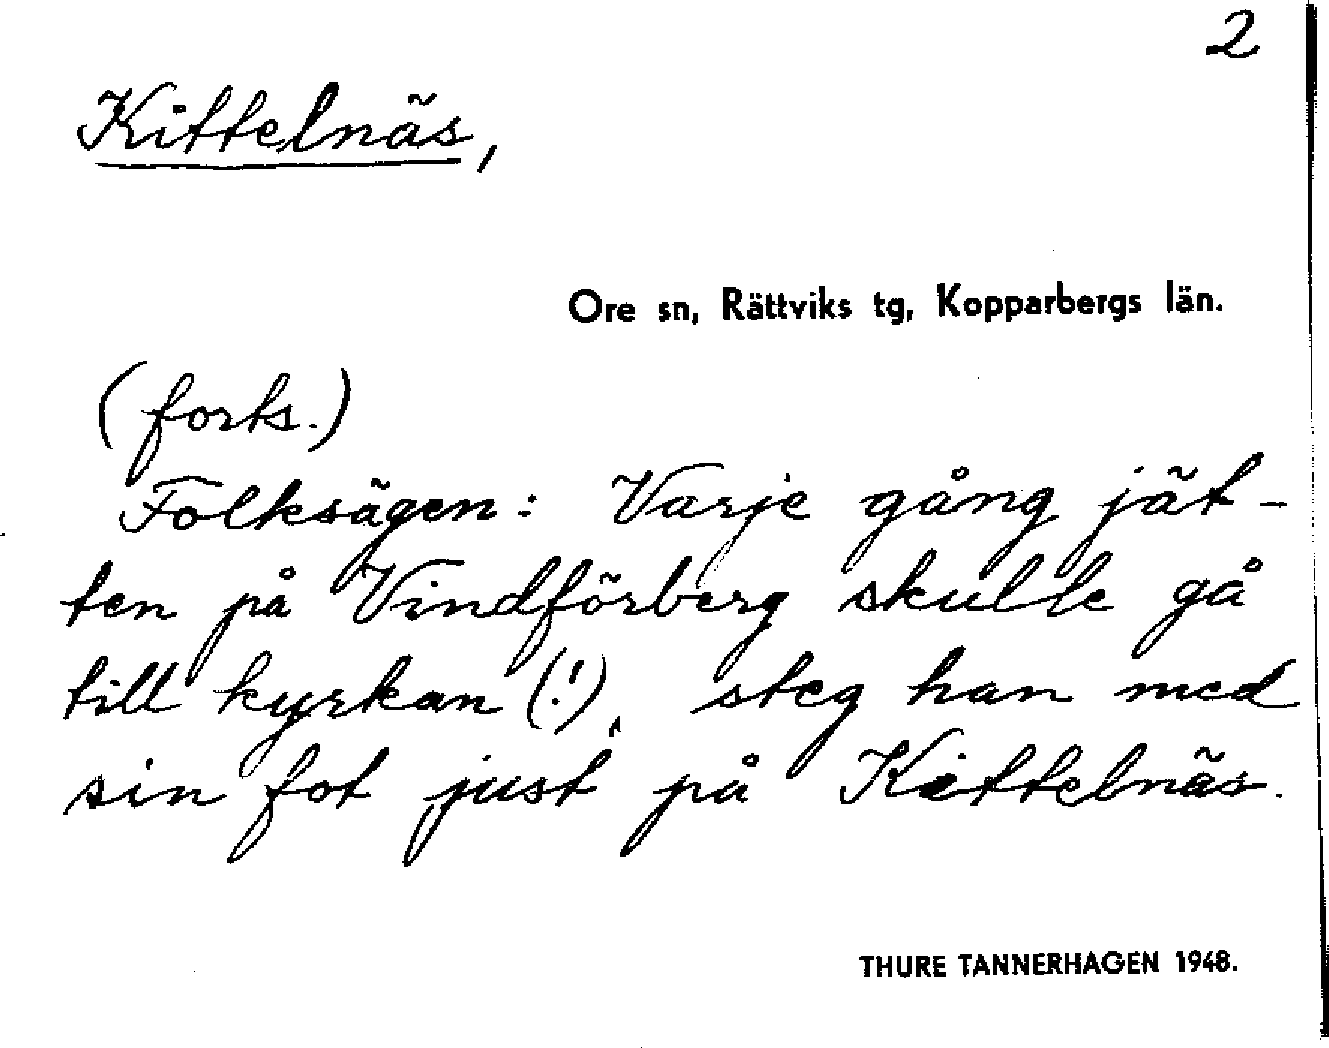 2
Kittelnäs,
Ore sn, Rättviks tg, Kopparbergs län.
(forts.)
Folksägen: Varje gång jät-
ten på Vindförberg skulle gå
till kyrkan (!), steg han med
sin fot just på Kittelnäs.
THURE TANNERHAGEN 1948.